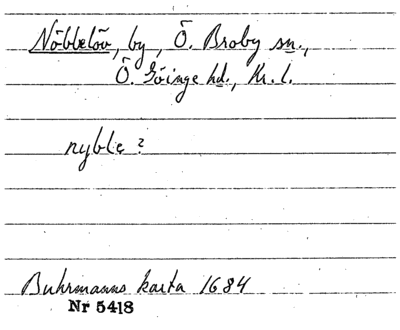 Nöbbelöv, by, Ö. Broby sn.,
Ö. Göinge hd., Kr. l.
nyble?
Buhrmanns karta 1684
Nr 5418